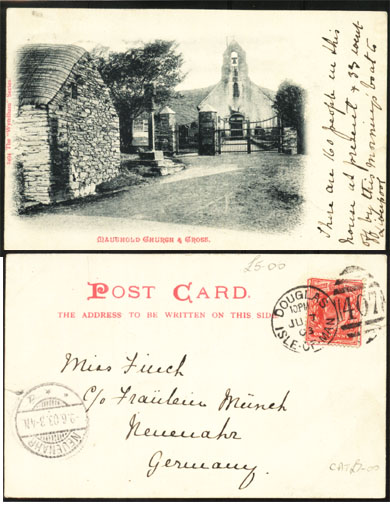 There are 160 people in this
house at present & 33 went
off by this morning's boat to
Liverpool
Maughold Church & Cross.
£5.00
Post Card.
THE ADDRESS TO BE WRITTEN ON THIS SIDE
DOUGLAS
10PM
JU
03
ISLE-OF-MAN
407
Miss Finch
c/o Fräulein Münch
Neuenahr
Germany.
NEUENAHR